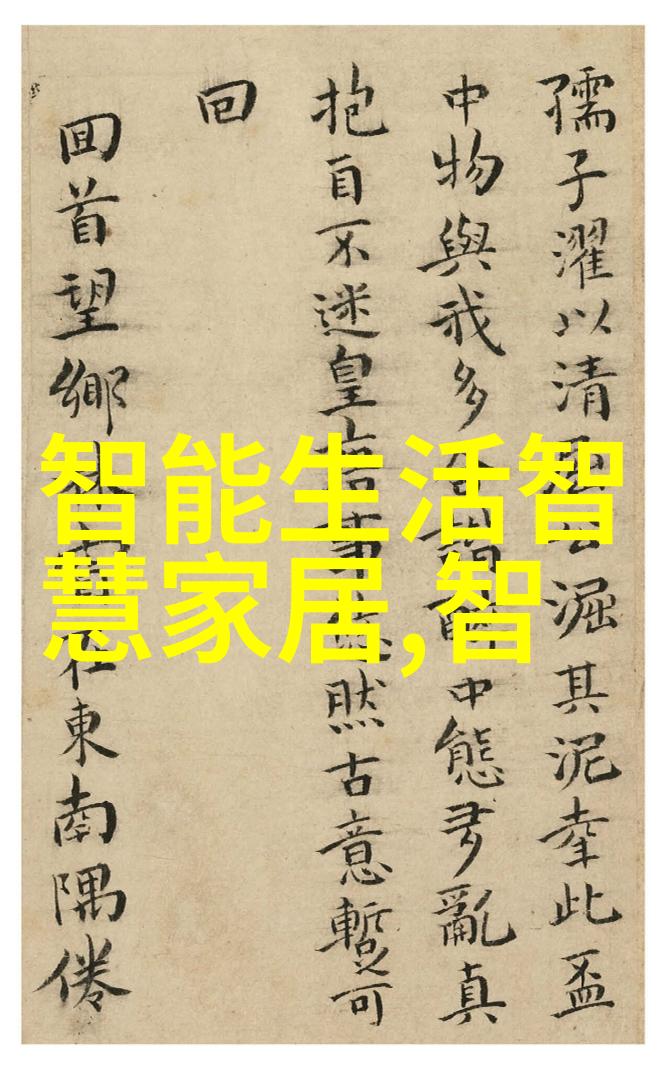 孺子濯以清
渥其泥幸此盃
中物與我多
中態多亂真
抱自不迷皇
然古意暫可
回
回首望鄉
在東南隅倦
智能生活智
慧家居,智